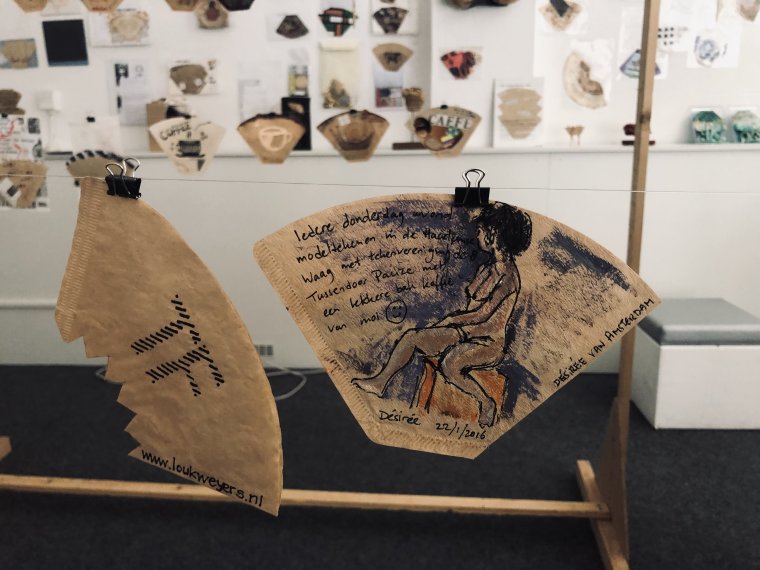 COFFEE
CAFFÈ
www.loukweyers.nl
Iedere donderdag avond
modeltekenen in de Haarlemse
Waag met tekenvereniging de
Tussendoor Pauze met
een lekkere bak koffie
van moi ☺
Désirée 22/1/2016
DÉSIRÉE VAN AMSTERDAM